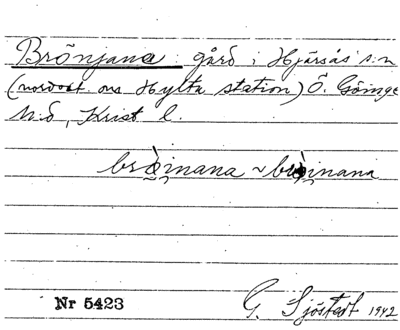 Brönjana gård i Hjärsås s:n
(nordost om Hylta station) Ö. Göinge
h:d, Krist l.
brò̤i̯nana ~ brò̤i̯nana
Nr 5423
G. Sjöstedt 1942